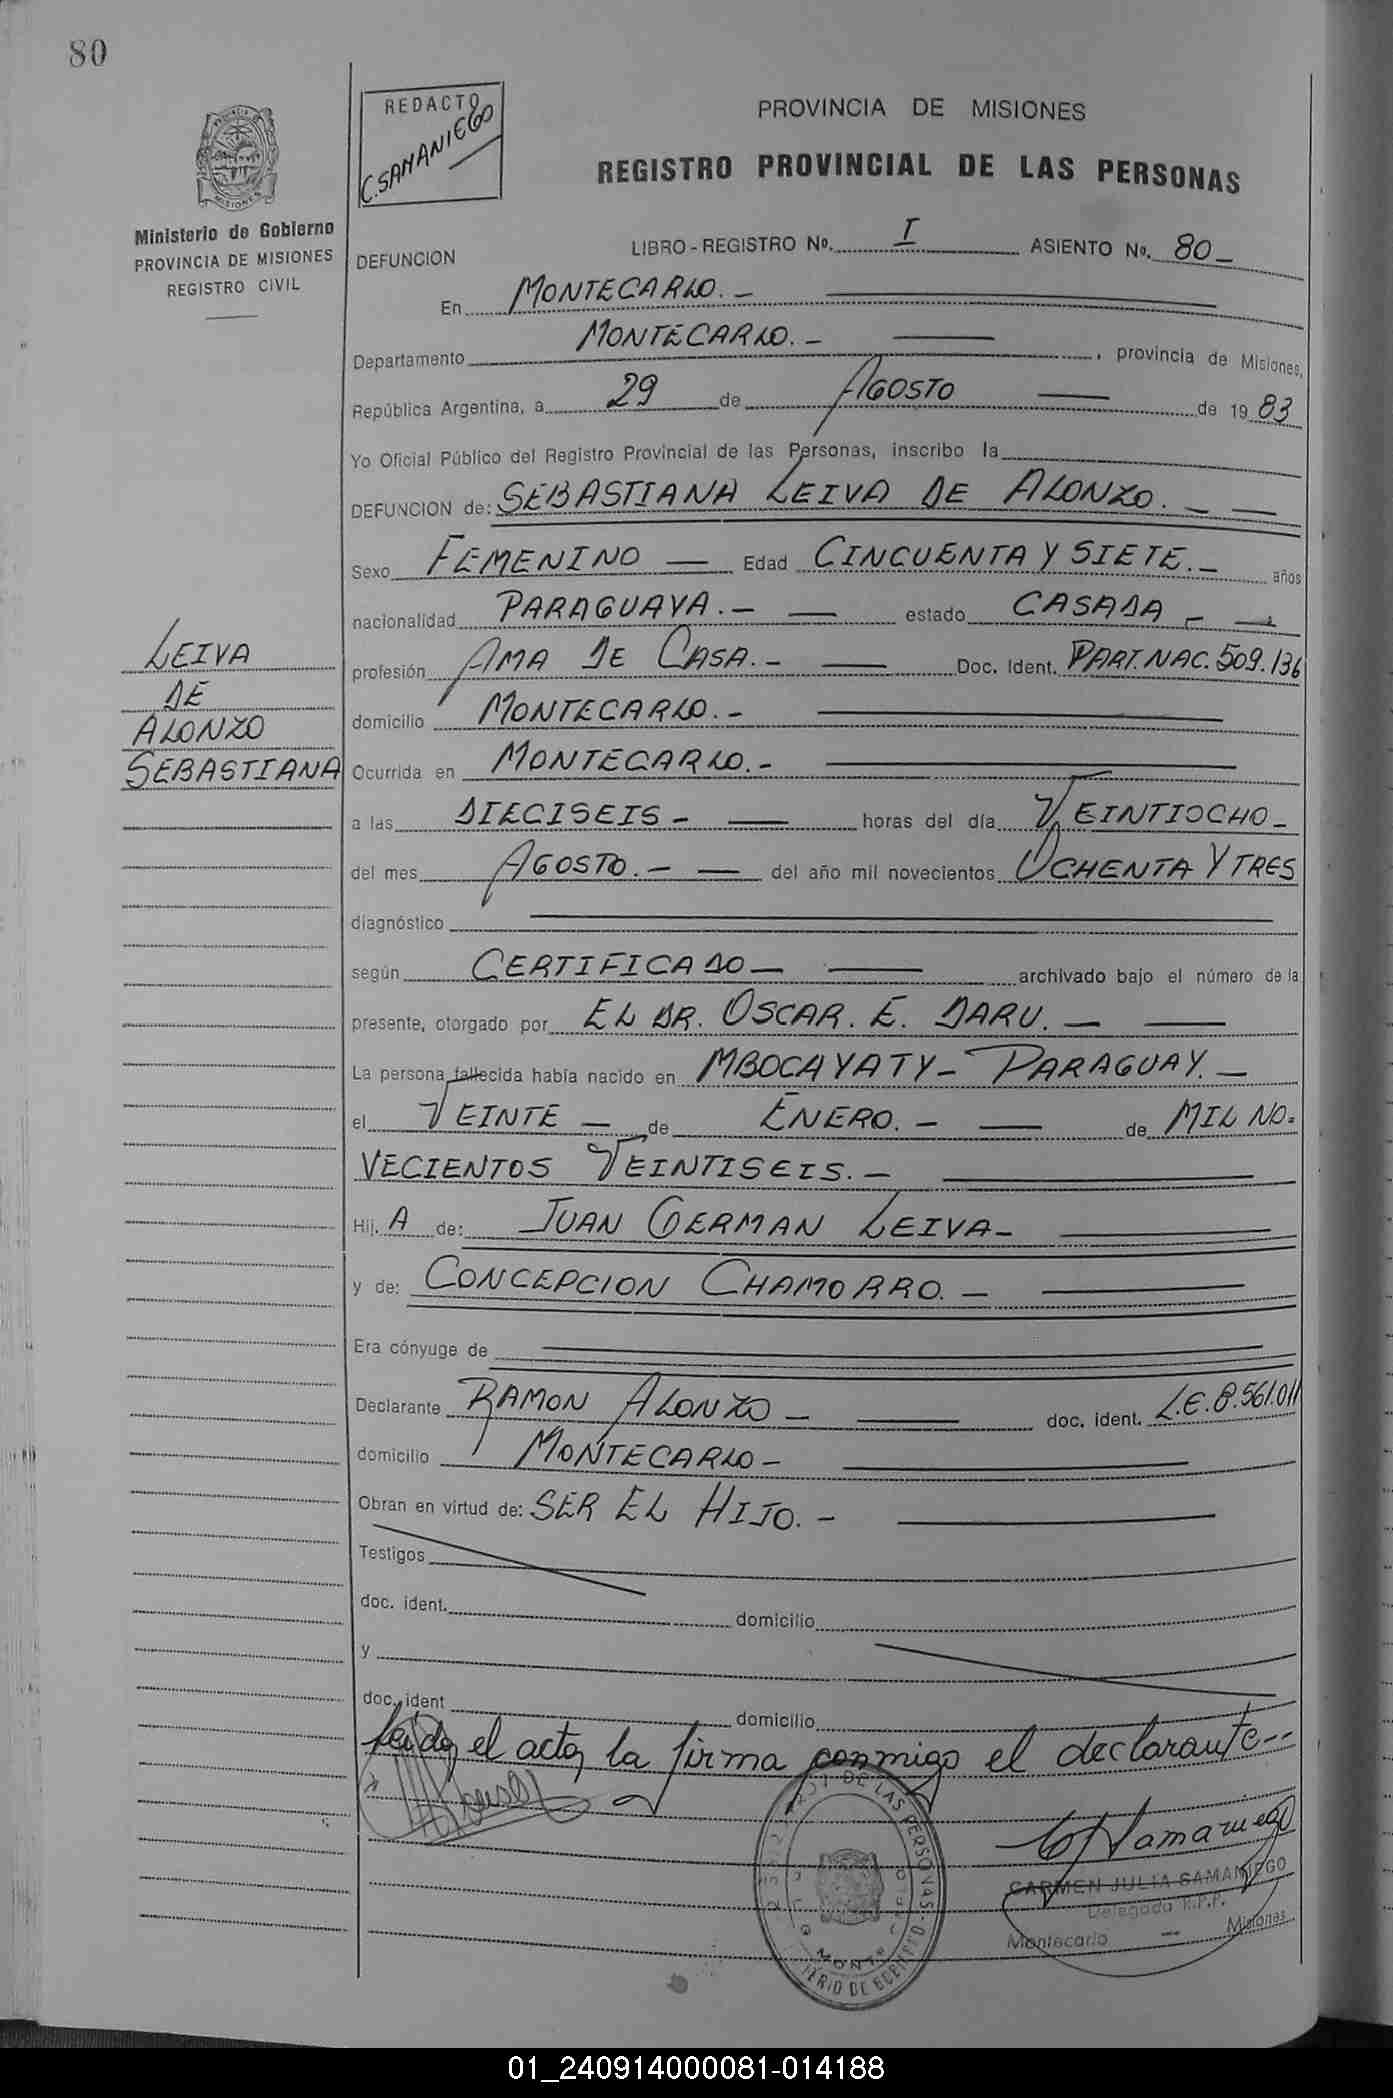 80
REDACTO
C. SAMANIEGO
PROVINCIA DE MISIONES
REGISTRO PROVINCIAL DE LAS PERSONAS
Ministerio de Gobierno
PROVINCIA DE MISIONES
REGISTRO CIVIL
LEIVA
DE
ALONZO
SEBASTIANA
DEFUNCION
LIBRO - REGISTRO No. I ASIENTO No. 80 -
En MONTECARLO. -
Departamento MONTECARLO. - , provincia de Misiones,
República Argentina, a 29 de AGOSTO de 19 83
Yo Oficial Público del Registro Provincial de las Personas, inscribo la
DEFUNCION de: SEBASTIANA LEIVA DE ALONZO. -
Sexo FEMENINO - Edad CINCUENTA Y SIETE. - años
nacionalidad PARAGUAYA. - estado CASADA -
profesión AMA DE CASA. - Doc. Ident. PART. NAC. 509.136
domicilio MONTECARLO. -
Ocurrida en MONTECARLO. -
a las DIECISEIS - horas del día VEINTIOCHO -
del mes AGOSTO. - del año mil novecientos OCHENTA Y TRES
diagnóstico
según CERTIFICADO - archivado bajo el número de la
presente, otorgado por EL DR. OSCAR. E. DARU. -
La persona fallecida había nacido en MBOCAYATY - PARAGUAY. -
el VEINTE - de ENERO. - de MIL NO=
VECIENTOS VEINTISEIS. -
Hij. A de: JUAN GERMAN LEIVA -
y de: CONCEPCION CHAMORRO. -
Era cónyuge de
Declarante RAMON ALONZO - doc. ident. L.E. 8.561.011
domicilio MONTECARLO -
Obran en virtud de: SER EL HIJO. -
Testigos
doc. ident. domicilio
y
doc. ident domicilio
Leída el acta, la firma conmigo el declarante--
C Samaniego
CARMEN JULIA SAMANIEGO
Delegada R.P.P.
Montecarlo - Misiones
01_240914000081-014188